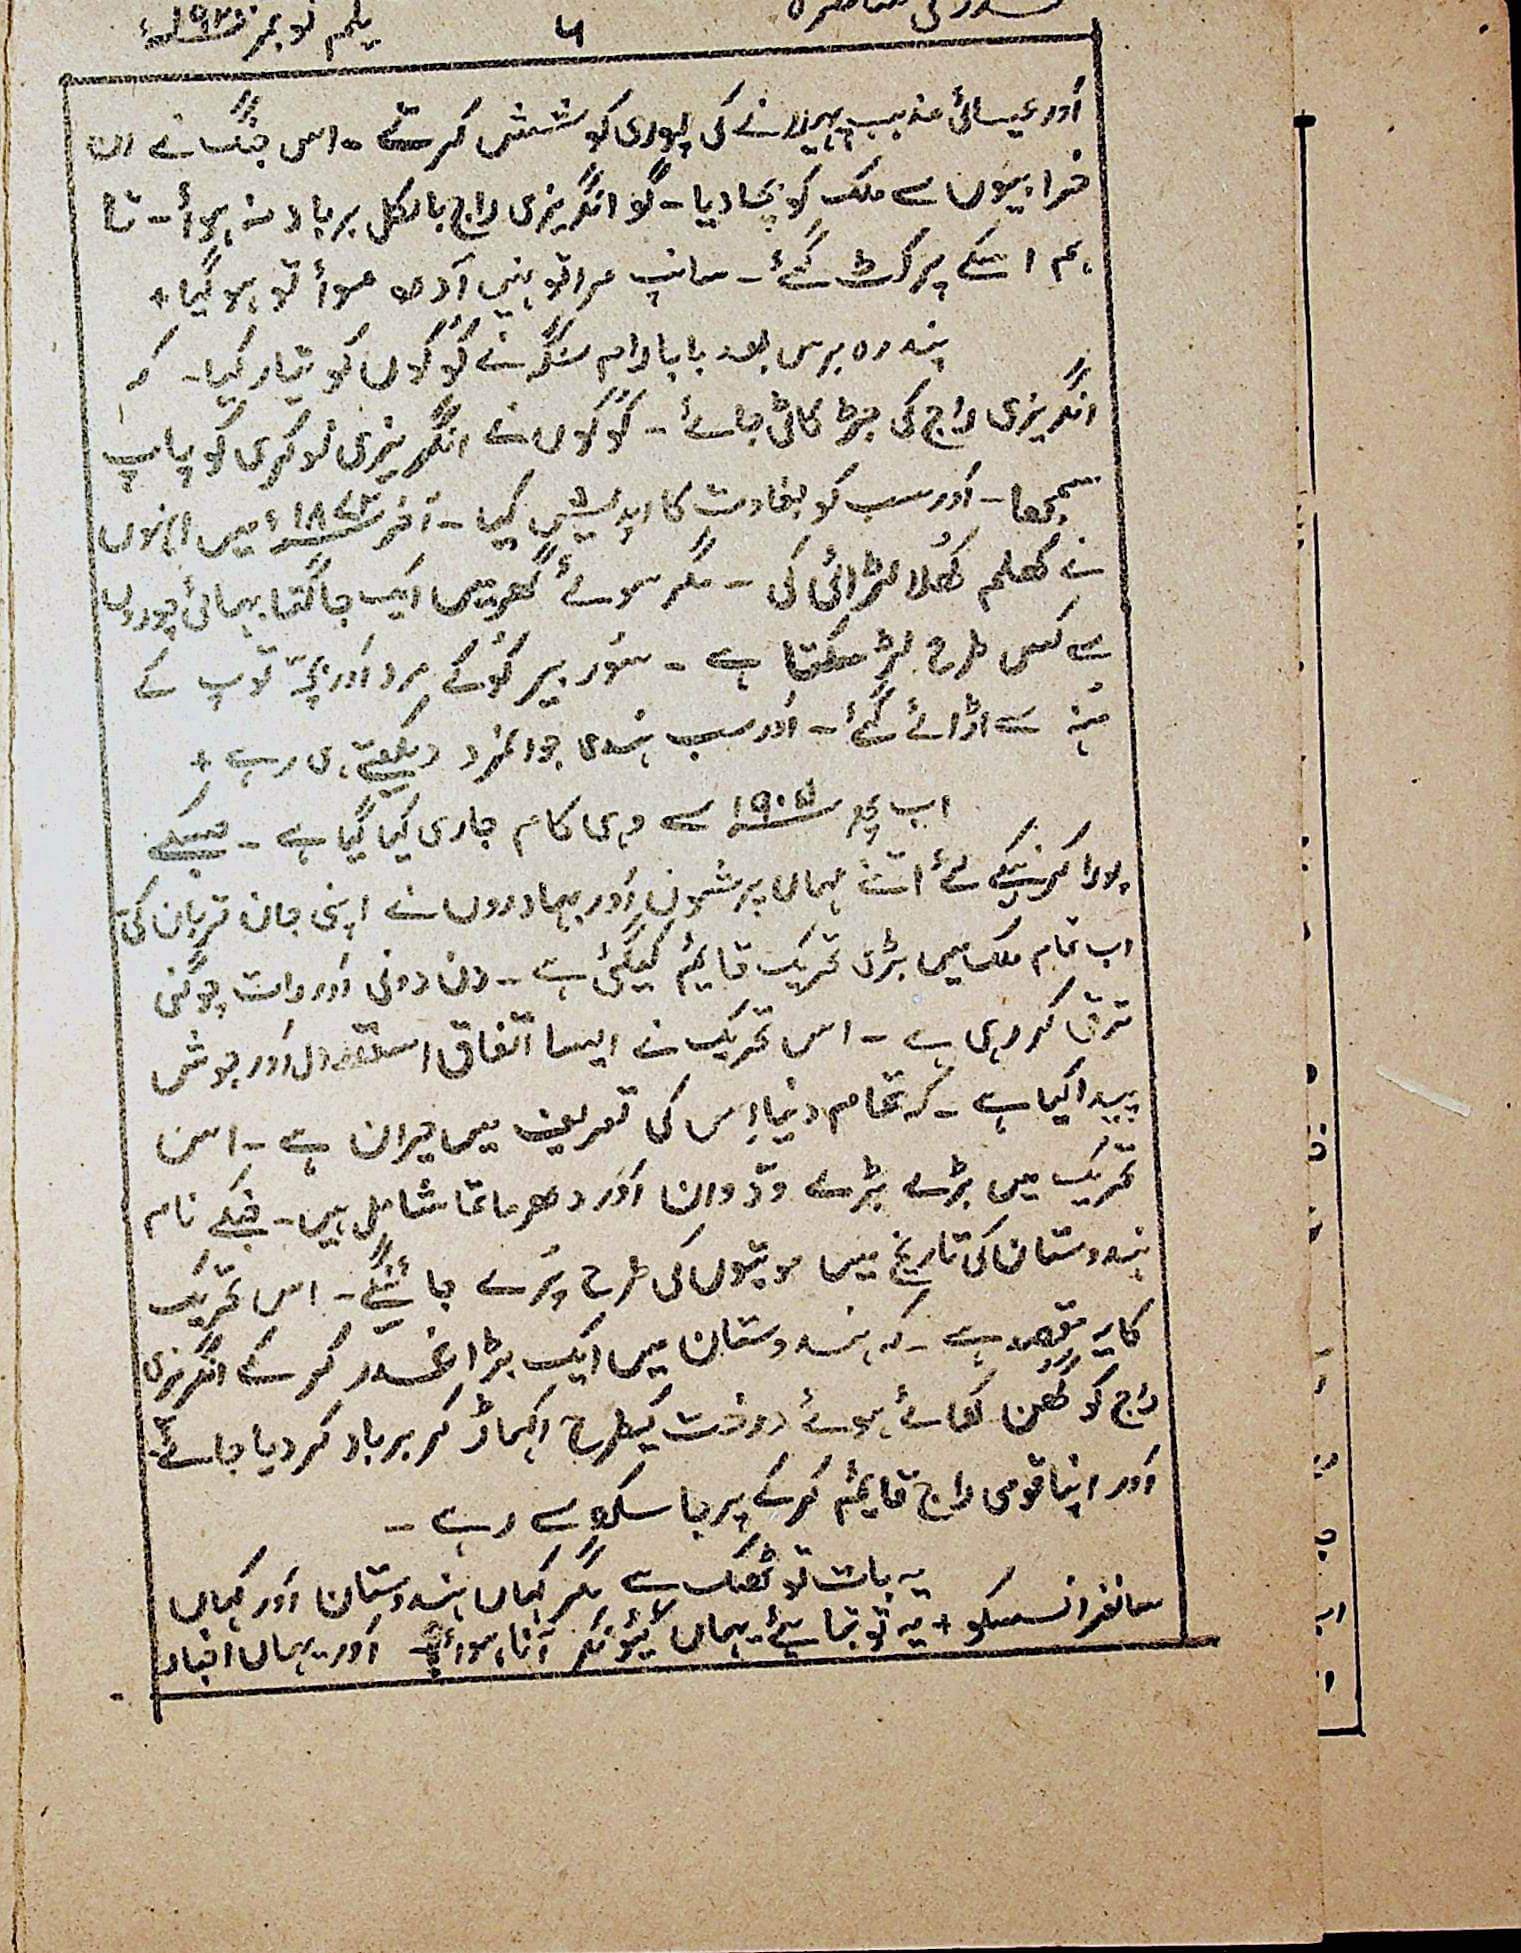 یکم نومبر
۶
اَور عیسائی مذہب پہیلانے کی پوری کوشش کرتے ۔ اس جنگ نے ان
خرابیوں سے ملک کو بچا دیا ۔ گو انگریزی راج بالکل برباد نہ ہوأ ۔ تا
ہم اسکے پر کٹ گئے ۔ سانپ مرا تو نہیں آدھ موأ تو ہو گیا +
پندرہ برس بعد بابا رام سنگہ نے کُوکوں کو تیار کیا ۔ کہ
انگریزی راج کی جڑ کاٹی جائے ۔ کُوکوں نے انگریزی نوکری کو پاپ
سمجھا ۔ اَور سب کو بغاوت کا اپدیش کیا ۔ آخر ۱۸۷۲ء میں انہوں
نے کھلم کُھلا لڑائی کی ۔ مگر سوئے گھر میں ایک جاگتا بہائی چوروں
سے کس طرح لڑ سکتا ہے ۔ سُور بیر کُوکے مرد اَور بچّے توپ کے
مُنہ سے اڑائے گئے ۔ اَور سب ہندی جوانمرد دیکھتے ہی رہے +
اب پھر ۱۹۰۵ سے وہی کام جاری کیا گیا ہے ۔ جسکے
پورا کرنیکے لئے اتنے مہاں پرشوں اَور بہادروں نے اپنی جان قربان کی
اب تمام ملک میں بڑی تحریک قایٔم کیگئی ہے ۔ دن دونی اَور رات چوگنی
ترقی کر رہی ہے ۔ اس تحریک نے ایسا اتّفاق استقلال اَور جوش
پیدا کیا ہے ۔ کہ تمام دنیا اِس کی تعریف میں حیران ہے ۔ اس
تحریک میں بڑے بڑے ودّوان اَور دھرماتما شامل ہیں ۔ جنکے نام
ہندوستان کی تاریخ میں موتیوں کی طرح پَرے جائنگے ۔ اس تحریک
کا یہ مقصد ہے ۔ کہ ہندوستان میں ایک بڑا غدر کر کے انگریزی
راج کو گُھن کھائے ہوئے درخت کیطرح اکہاڑ کر برباد کر دیا جائے ۔
اَور اپنا قومی راج قایٔم کر کے پرجا سکھ سے رہے ۔
یہ بات تو ٹھیک ہے مگر کہاں ہندوستان اَور کہاں
سانفرانسسکو + یہ تو بتایئے یہاں کیُونکر آنا ہوأ ؟ اَور یہاں اخبار